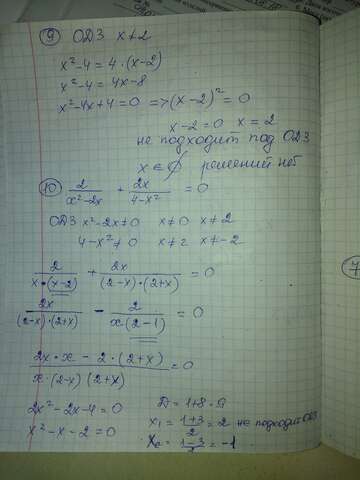 9) ОДЗ x≠2
x²-4=4·(x-2)
x²-4=4x-8
x²-4x+4=0 => (x-2)²=0
x-2=0 x=2
не подходит под ОДЗ
x∈∅ решений нет
10) 2/(x²-2x) + 2x/(4-x²) = 0
ОДЗ x²-2x≠0 x≠0 x≠2
4-x²≠0 x≠2 x≠-2
2/(x·(x-2)) + 2x/((2-x)·(2+x)) = 0
2x/((2-x)·(2+x)) - 2/(x(2-1)) = 0
(2x·x-2·(2+x))/(x·(2-x)(2+x)) = 0
2x²-2x-4=0 D=1+8=9
x²-x-2=0 x₁=(1+3)/2=2 не подходит ОДЗ
x₂=(1-3)/2=-1
7